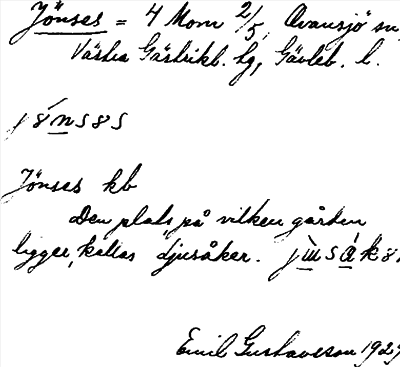 Jönses = 4 Mom 2/5, Ovansjö sn,
Västra Gästrikl. hg, Gävleb. l.
Jönses kb
Den plats, på vilken gården
ligger, kallas "djusåker.
Emil Gustavsson 1927